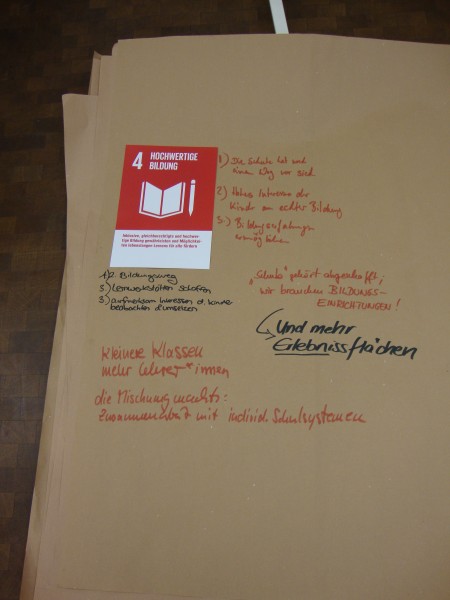 4 HOCHWERTIGE
BILDUNG
Inklusive, gleichberechtigte und hochwer-
tige Bildung gewährleisten und Möglichkei-
ten lebenslangen Lernens für alle fördern
1) Die Schule hat noch
einen Weg vor sich
2) Hohes Interesse der
Kinder an echter Bildung
3.) Bildungserfahrungen
ermöglichen
1) 2. Bildungsweg
2.) Lernwerkstätten schaffen
3) aufmerksam Interessen d. Kinder
beobachten & umsetzen
"Schule" gehört abgeschafft;
wir brauchen BILDUNGS-
EINRICHTUNGEN!
Und mehr
Erlebnissflächen
kleinere Klassen
mehr Lehrer*innen
die Mischung macht's:
Zusammenarbeit mit individ. Schulsystemen